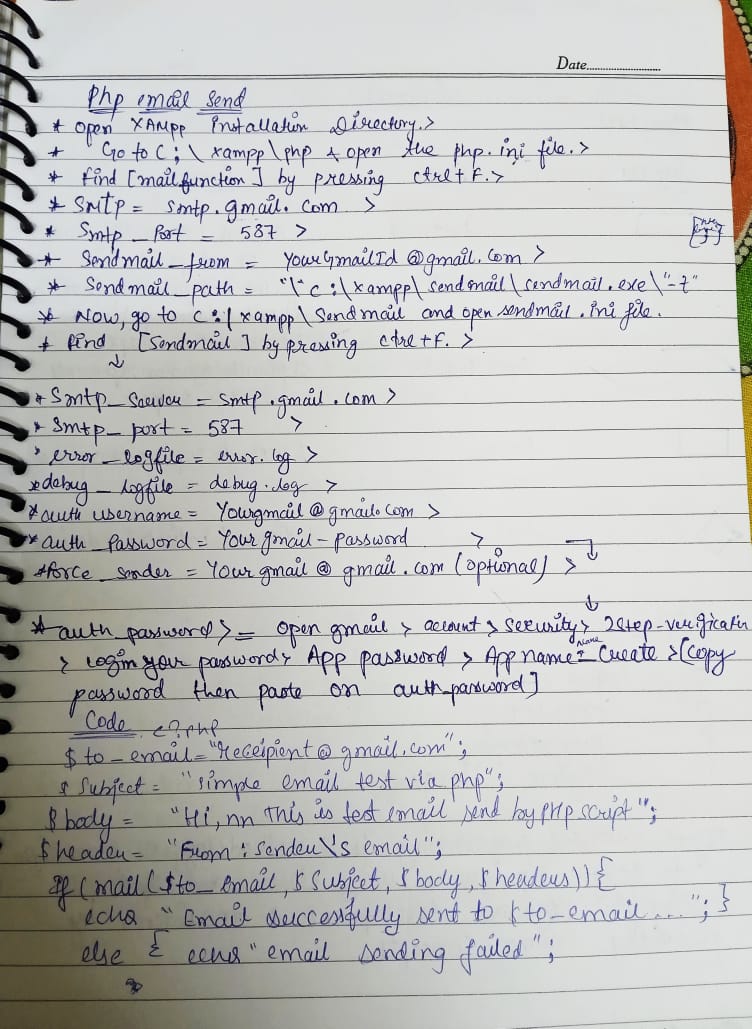 Date
Php email send
* open XAMPP Installation Directory.>
* Go to C:\xampp\php & open the php.ini file.>
* find [mail function] by pressing ctrl+f.>
* SMTP = smtp.gmail.com >
* Smtp_Port = 587 >
* Sendmail_from = YourGmailId@gmail.com >
* Sendmail_path = "\"c:\xampp\sendmail\sendmail.exe\"-t"
* Now, go to c:\xampp\Sendmail and open sendmail.ini file.
* find [Sendmail] by pressing ctrl+f. >
↓
* Smtp_Server = smtp.gmail.com >
* Smtp_port = 587 >
* error_logfile = error.log >
* debug_logfile = debug.log >
* auth username = Yourgmail@gmail.com >
* auth_Password = Your gmail-password >
* force_sender = Your gmail@gmail.com (optional) >
↓
* auth_password >= open gmail > account > security > 2step-verification
> Login your password > App password > App name = Create > [copy
name
password then paste on auth_password]
Code <?php
$to_email = "Receipient@gmail.com";
$Subject = "simple email test via php";
$body = "Hi,nn This is test email send by PHP script";
$header = "From: Sender\'s email";
If (mail($to_email, $Subject, $body, $headers)) {
echo "Email successfully sent to $to_email..."; }
else { echo "email sending failed";